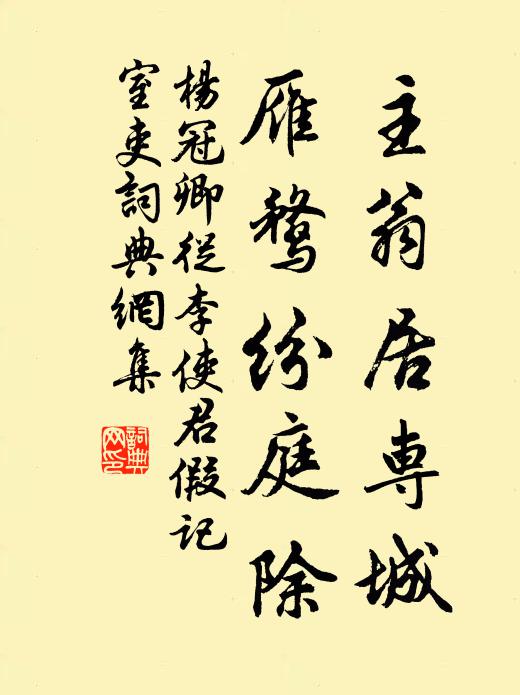 主翁居専城
雁鶩纷庭除
楊冠卿從李使君假記
室吏詞典網集
詞典
网印